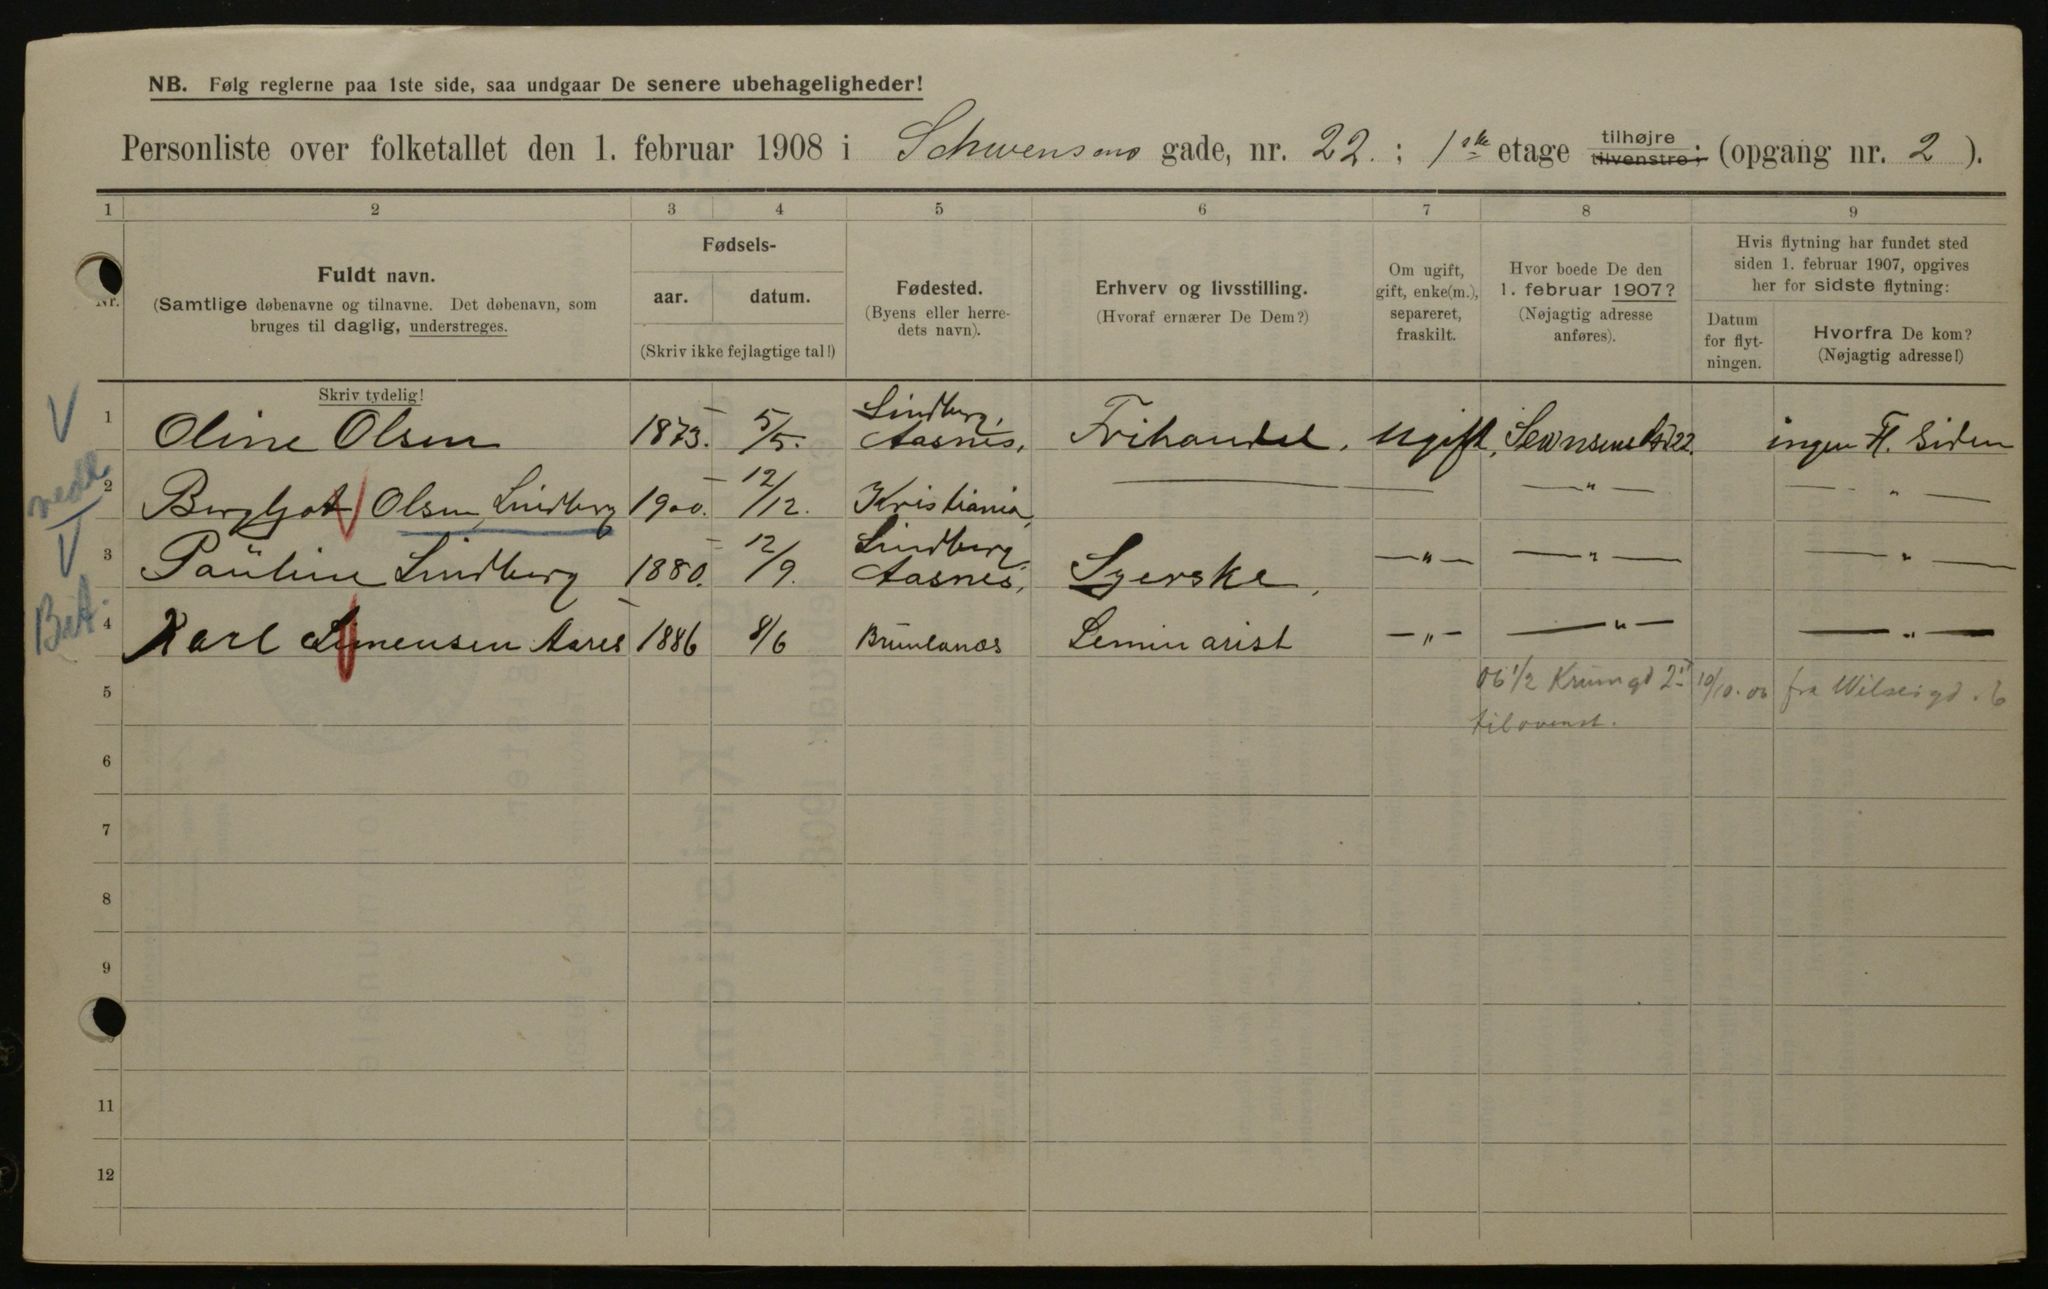 NB. Følg reglerne paa 1ste side, saa undgaar De senere ubehageligheder!
Personliste over folketallet den 1. februar 1908 i Schwensens gade, nr. 22. ; 1ste etage tilhøjre tilvenstre; (opgang nr. 2 ).
1 2 3 4 5 6 7 8 9
Nr.
Fuldt navn.
(Samtlige døbenavne og tilnavne. Det døbenavn, som
bruges til daglig, understreges.
Fødsels-
aar. datum.
(Skriv ikke fejlagtige tal!)
Fødested.
(Byens eller herre-
dets navn).
Erhverv og livsstilling.
(Hvoraf ernærer De Dem?)
Om ugift,
gift, enke(m.),
separeret,
fraskilt.
Hvor boede De den
1. februar 1907?
(Nøjagtig adresse
anføres).
Hvis flytning har fundet sted
siden 1. februar 1907, opgives
her for sidste flytning:
Datum
for flyt-
ningen.
Hvorfra De kom?
(Nøjagtig adresse!)
Skriv tydelig!
V 1 Oline Olsen 1873. 5/5. Lindberg, Aasnes. Frihandel. Ugift, 22. ingen Fl. siden
2 Bergljot Olsen Lindberg 1900. 12/12. Kristiania, — — " — — " —
V 3 Pauline Lindberg 1880. 12/9. Lindberg, Aasnes. Syerske. — " — — " — — " —
4 Karl Simensen Aares 1886 8/6 Brunlanæs Seminarist — " — — " — — " —
5 06 1/2 Krumgd 2 II 10/10. 06 fra Wilsesgd. 6
tilvenst.
6
7
8
9
11
12